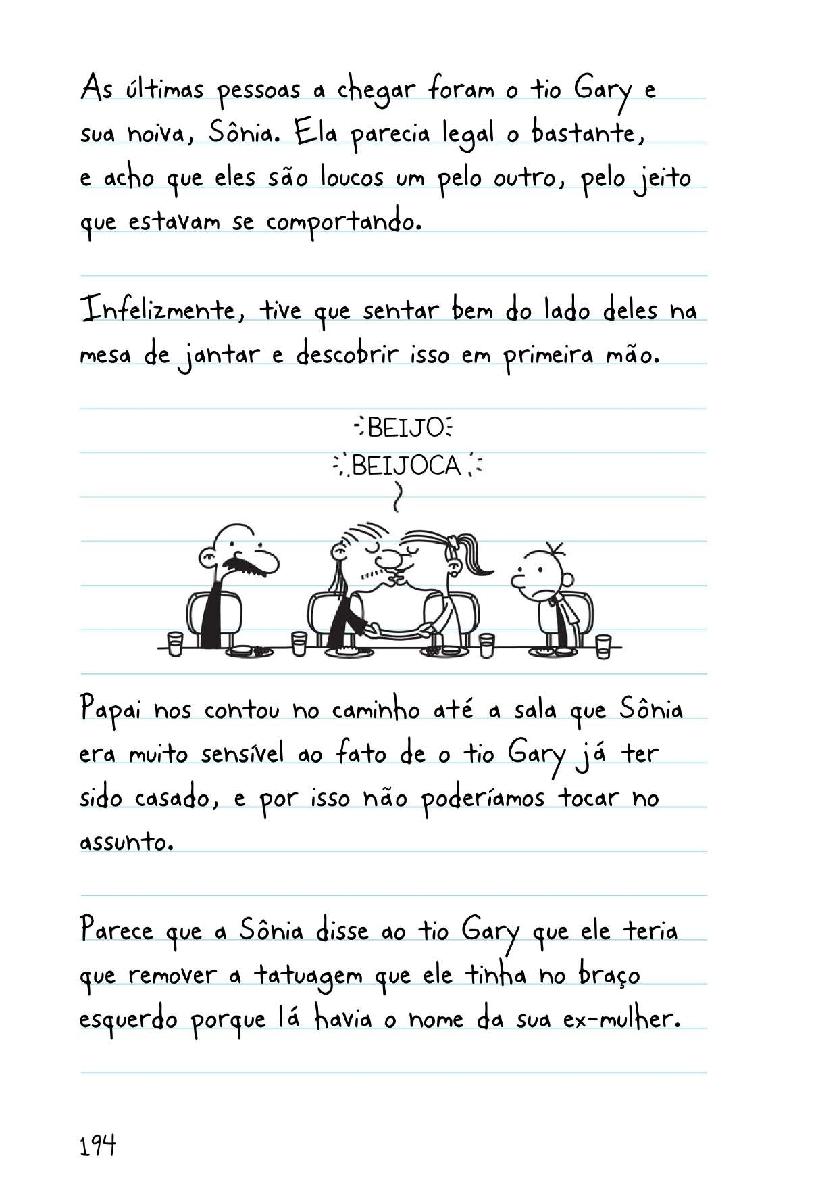 As últimas pessoas a chegar foram o tio Gary e
sua noiva, Sônia. Ela parecia legal o bastante,
e acho que eles são loucos um pelo outro, pelo jeito
que estavam se comportando.
Infelizmente, tive que sentar bem do lado deles na
mesa de jantar e descobrir isso em primeira mão.
BEIJO
BEIJOCA
Papai nos contou no caminho até a sala que Sônia
era muito sensível ao fato de o tio Gary já ter
sido casado, e por isso não poderíamos tocar no
assunto.
Parece que a Sônia disse ao tio Gary que ele teria
que remover a tatuagem que ele tinha no braço
esquerdo porque lá havia o nome da sua ex-mulher.
194